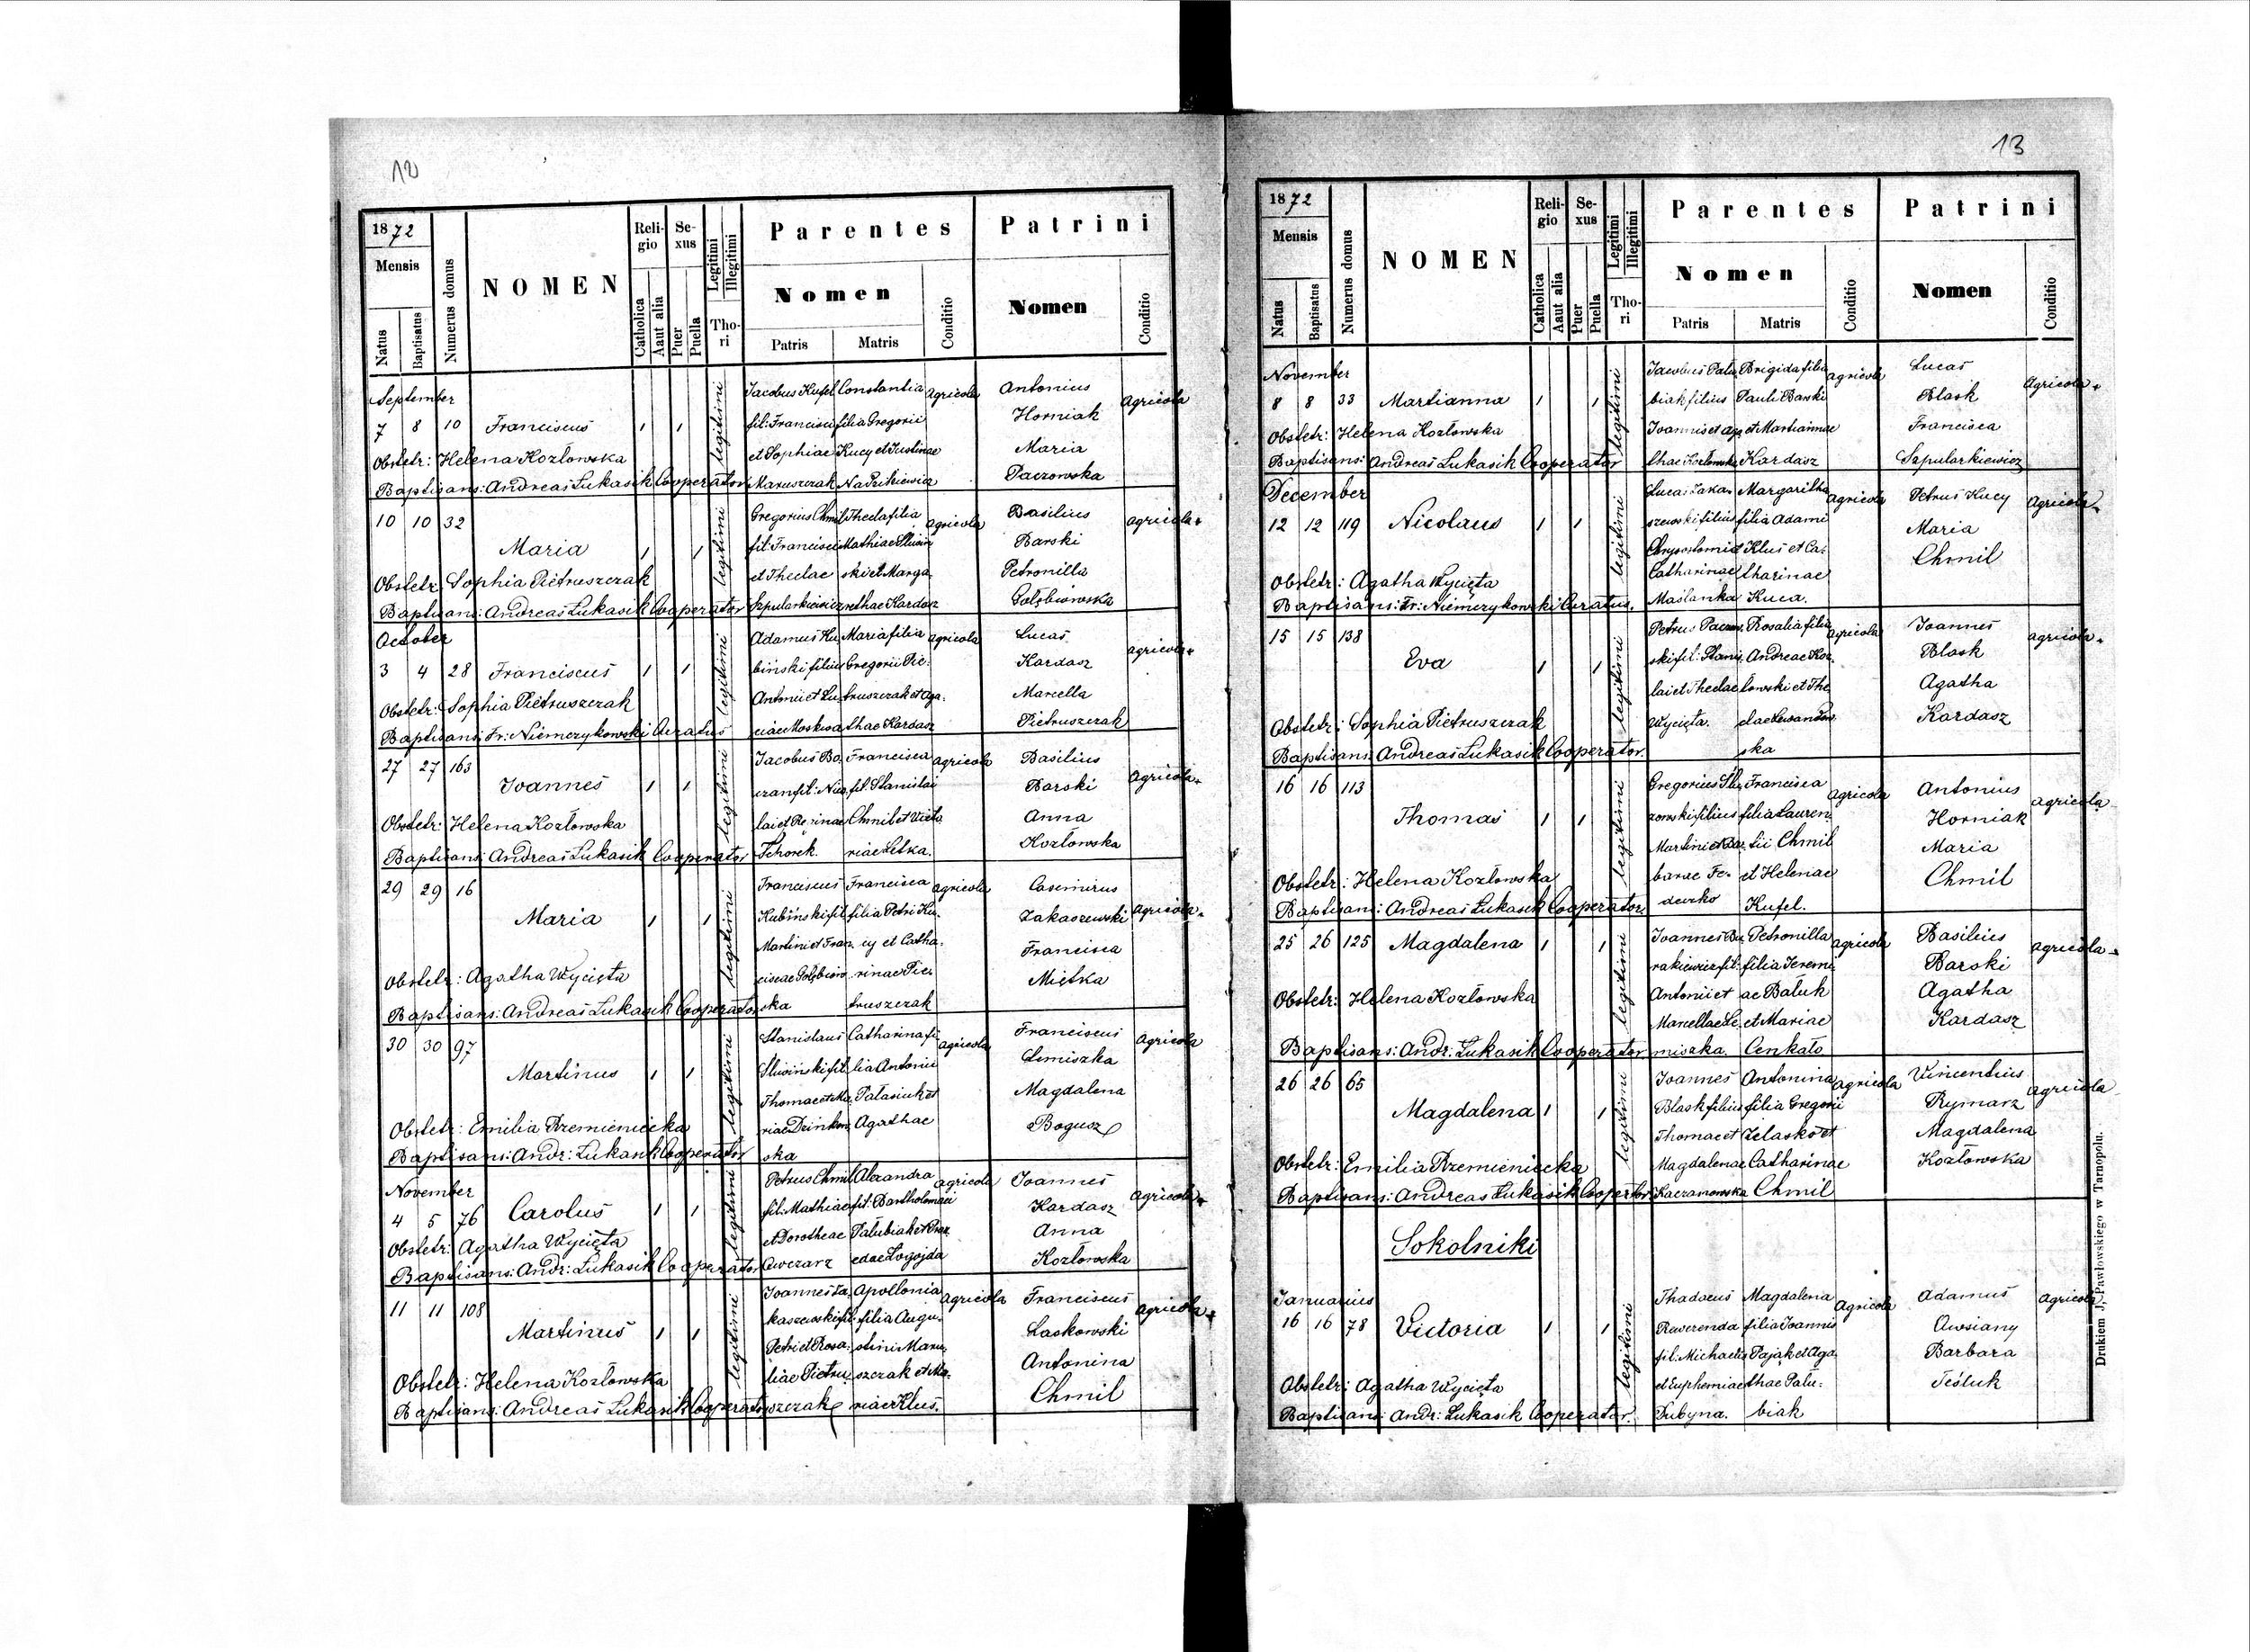 12
1872
Mensis
Natus
Baptisatus
Numerus domus
NOMEN
Religio
Catholica
Aaut alia
Sexus
Puer
Puella
Legitimi
Illegitimi
Thori
Parentes
Nomen
Patris
Matris
Conditio
Patrini
Nomen
Conditio
September
7 8 10 Franciscus 1 1 legitimi
Obstetr: Helena Kozłowska
Baptisans: Andreas Łukasik Cooperator
Jacobus Kufel
fil: Francisci
et Sophiae
Maruszczak
Constantia
filia Gregorii
Kucy et Justinae
agricola
Antonius
Horniak
Maria
Paczowska
agricola
10 10 32
Maria 1 1 legitimi
Obstetr: Sophia Pietruszczak
Baptisans: Andreas Łukasik Cooperator
Gregorius Chmil
fil: Francisci
et Theclae
Szpularkiewicz
Thecla filia
Mathiae Śliwiń
ski et Marga
rethae Kardasz
agricola
Basilius
Barski
Petronilla
Gołębiowska
agricola
October
3 4 28 Franciscus 1 1 legitimi
Obstetr: Sophia Pietruszczak
Baptisans: Fr: Niemczykowski Curatus
Adamus Ku
biński filius
Antonii et Lu
ciae Moskwa
Maria filia
Gregorii Pie
truszczak et Aga
thae Kardasz
agricola
Lucas
Kardasz
Marcella
Pietruszczak
agricola
27 27 163
Joannes 1 1 legitimi
Obstetr: Helena Kozłowska
Baptisans: Andreas Łukasik Cooperator
Jacobus Bo
czan fil: Nico
lai et Reginae
Tchorek.
Francisca
fil: Stanislai
Chmil et Victo
riae Letka.
agricola
Basilius
Barski
Anna
Kozłowska
agricola
29 29 16
Maria 1 1 legitimi
Obstetr: Agatha Wycięta
Baptisans: Andreas Łukasik Cooperator
Franciscus
Kubiński fil
Martini et Fran
ciscae Gołębiow
ska
Francisca
filia Petri Ku
cy et Catha
rinae Pie
truszczak
agricola
Casimirus
Zakaszewski
Francisca
Miętka
agricola
30 30 97
Martinus 1 1 legitimi
Obstetr: Emilia Rzemieniecka
Baptisans: Andr: Łukasik Cooperator
Stanislaus
Śliwiński fil
Thomae et Ma
riae Dzinkow
ska
Catharina fi
lia Antonii
Pałasiuk et
Agathae
agricola
Franciscus
Lemiszka
Magdalena
Bogusz
agricola
November
4 5 76 Carolus 1 1 legitimi
Obstetr: Agatha Wycięta
Baptisans: Andr: Łukasik Cooperator
Petrus Chmil
fil: Mathiae
et Dorotheae
Owczarz
Alexandra
fil: Bartholomaei
Pałubiak et Prax
edae Łogojda
agricola
Joannes
Kardasz
Anna
Kozłowska
agricola
11 11 108
Martinus 1 1 legitimi
Obstetr: Helena Kozłowska
Baptisans: Andreas Łukasik Cooperator
Joannes Za
kaszewski fil
Petri et Rosa
liae Pietru
szczak
Apollonia
filia Augu
stini Maru
szczak et Ma
riae Kluś.
agricola
Franciscus
Laskowski
Antonina
Chmil
agricola
13
1872
Mensis
Natus
Baptisatus
Numerus domus
NOMEN
Religio
Catholica
Aaut alia
Sexus
Puer
Puella
Legitimi
Illegitimi
Thori
Parentes
Nomen
Patris
Matris
Conditio
Patrini
Nomen
Conditio
November
8 8 33 Martianna 1 1 legitimi
Obstetr: Helena Kozłowska
Baptisans: Andreas Łukasik Cooperator
Jacobus Pału
biak filius
Joannis et Aga
thae Kozłowska
Brigida filia
Pauli Barski
et Martiannae
Kardasz
agricola
Lucas
Błask
Francisca
Szpularkiewicz
agricola
December
12 12 119 Nicolaus 1 1 legitimi
Obstetr: Agatha Wycięta
Baptisans: Fr: Niemczykowski Curatus.
Lucas Zaka
szewski filius
Chrysostomi et
Catharinae
Maślanka
Margaritha
filia Adami
Kluś et Ca
tharinae
Kuca.
agricola
Petrus Kucy
Maria
Chmil
agricola
15 15 138
Eva 1 1 legitimi
Obstetr: Sophia Pietruszczak
Baptisans: Andreas Łukasik Cooperator.
Petrus Paczow
ski fil: Stanis
lai et Theclae
Wycięta.
Rosalia filia
Andreae Koz
łowski et The
clae Lewandow
ska
agricola
Joannes
Błask
Agatha
Kardasz
agricola
16 16 113
Thomas 1 1 legitimi
Obstetr: Helena Kozłowska
Baptisans: Andreas Łukasik Cooperator
Martini et Bar
barae Fe
deczko
Francisca
filia Lauren
tii Chmil
et Helenae
Kufel.
agricola
Antonius
Horniak
Maria
Chmil
agricola
25 26 125 Magdalena 1 1 legitimi
Obstetr: Helena Kozłowska
Baptisans: Andr: Łukasik Cooperator
Joannes Bu
rakiewicz fil:
Antonii et
Marcellae Le
miszka.
Petronilla
filia Jeremi
ae Bałuk
et Mariae
Cenkało
agricola
Basilius
Barski
Agatha
Kardasz
agricola
26 26 65
Magdalena 1 1 legitimi
Obstetr: Emilia Rzemieniecka
Baptisans: Andreas Łukasik Cooperator
Joannes
Błask filius
Thomae et
Magdalenae
Kaczanowska
Antonina
filia Gregorii
Żelasko et
Catharinae
Chmil
agricola
Vincentius
Rymarz
Magdalena
Kozłowska
agricola
Sokolniki
Januarius
16 16 78 Victoria 1 1 legitimi
Obstetr: Agatha Wycięta
Baptisans: Andr: Łukasik Cooperator.
Thadaeus
Rewerenda
fil: Michaelis
et Euphemiae
Dubyna.
Magdalena
filia Joannis
Pająk et Aga
thae Pału
biak
agricola
Adamus
Owsiany
Barbara
Teśluk
agricola
Drukiem J. Pawłowskiego w Tarnopolu.